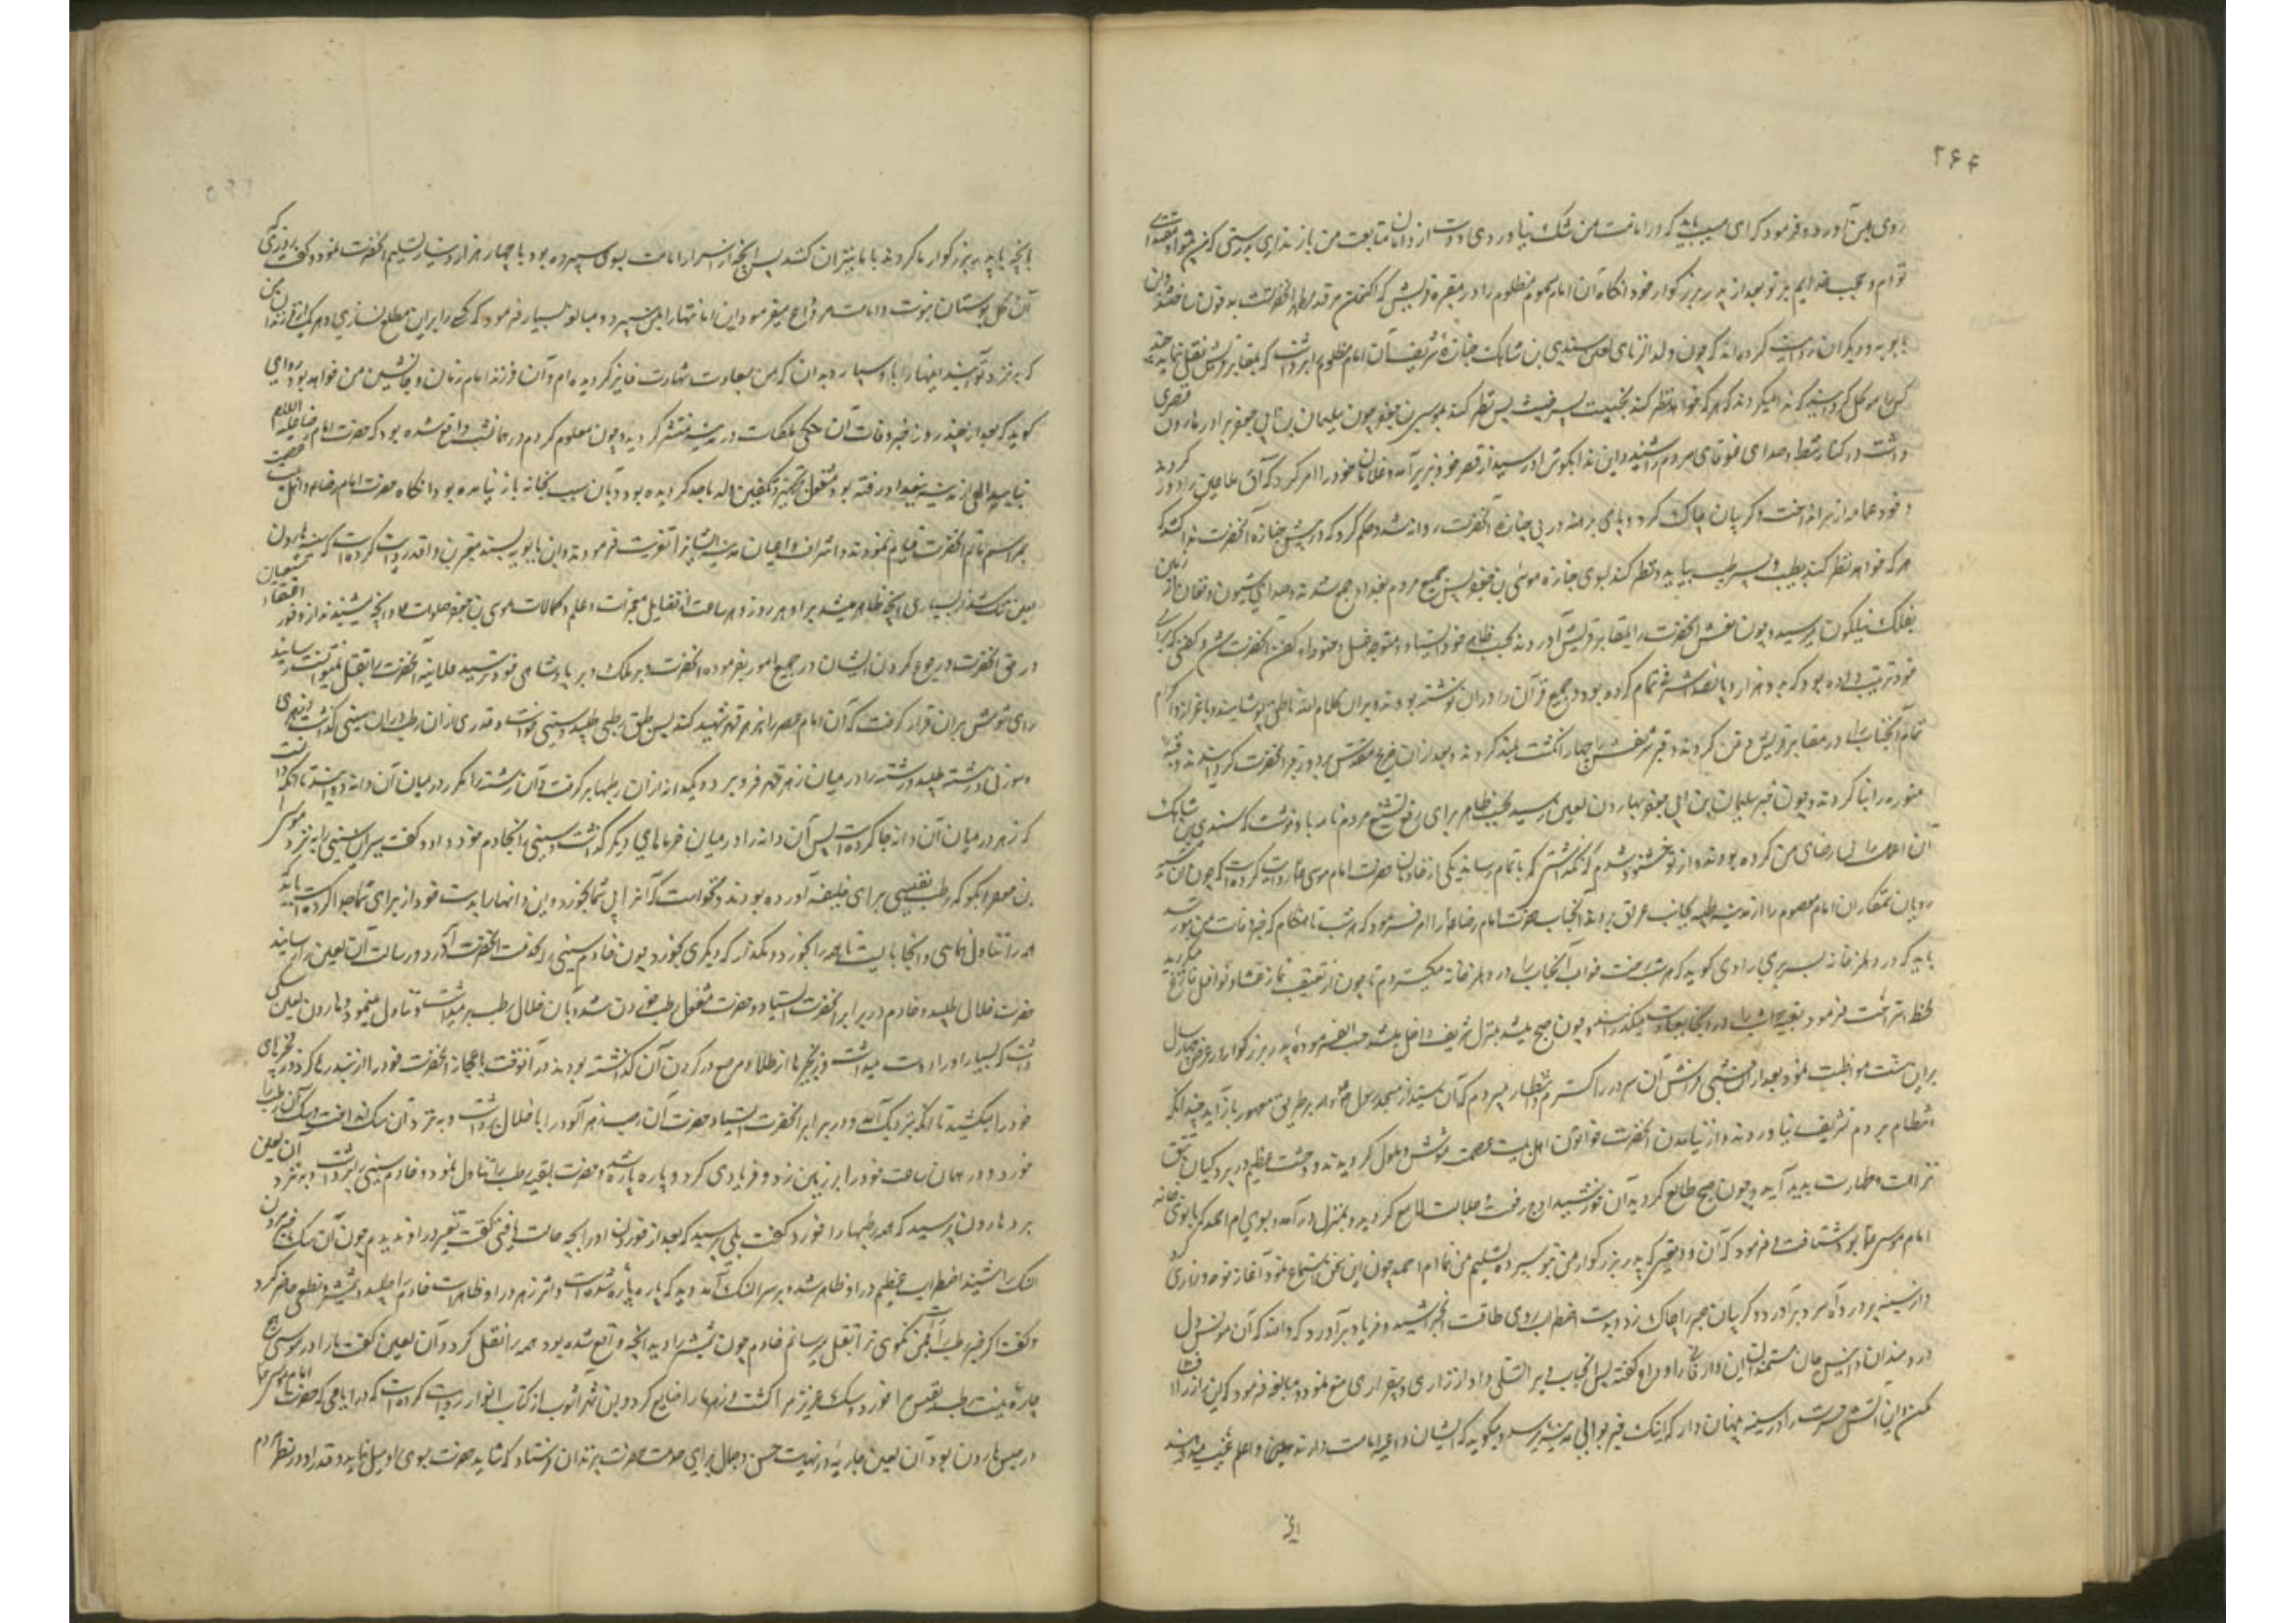 ۲۶۴
روی بمن آورد و فرمود که ای مسیب باید که در امامت من شک نیاوردی و دست از دامان متابعت من باز نداری بدرستی که من پیشوا و مقتدای
توام و حجت خدایم بر تو بعد از پدر بزرگوار خود انگاه آن امام مسموم مظلوم را در مقبره قریش که اکنون مرقد مطهر انحضرتست مدفون ساختند و ابن
بابویه و دیگران روایت کرده اند که چون ولد الزنای لعین سندی بن شاهک جنازهٔ شریف آن امام مظلوم برداشت که بمقابر قریش نقل نماید
کس را موکل کردانیدند که ندا میکردند که هر که خواهد نظر کند بخبیث پسر خبیث پس نظر کند بموسی بن جعفر چون سلیمان بن ابی جعفر برادر هارون قصری
داشت در کنار شط صدای غوغای مردم را شنید و این ندا بگوش او رسید از قصر خود بزیر آمد و غلامان خود را امر کرد که آن ملاعین را دور کردند
و خود عمامه از سر انداخت و گریبان چاک کرد و پای برهنه در پی جنازهٔ انحضرت روانه شد و حکم کرد که در پیش جنازه انحضرت ندا کنند که
هر که خواهد نظر کند بطیب پسر طیب بیاید و نظر کند بسوی جنازه موسی بن جعفر پس جمیع مردم بغداد جمع شدند و صدای شیون و فغان از زمین
بفلک نیلگون میرسید و چون نعش انحضرت را بمقابر قریش آوردند بحسب ظاهر خود ایستاد و متوجه غسل و حنوط و کفن انحضرت شد و کفنی که برای
خود ترتیب داده بود که بدو هزار و پانصد اشرفی تمام کرده بود و جمیع قرآن را در آن نوشته بودند بر آن کلام الله ناطق پوشانیدند و با اعزاز و اکرام
تمام آنجناب را در مقابر قریش دفن کردند و قبر شریفش را چهار انگشت بلند کردند و بعد از ان ضریح مقدس بر دور قبر انحضرت کردانیدند و قبه
منوره را بنا کردند و چون خبر سلیمان بن ابی جعفر بهارون لعین رسید بحسب ظاهر برای رفع تشنیع مردم نامه باو نوشت که سندی بن شاهک
آن اعمال را بی رضای من کرده بود و از تو خشنود شدم که نگذاشتی که باتمام رساند یکی از خادمان حضرت امام موسی ع روایت کرده است که چون
ستمکاران امام معصوم را از مدینه طیبه بجانب عراق بردند آنجناب حضرت امام رضا ع را امر فرمود که هر شب تا هنگام که خبر وفات من برسد
باید که در دهلیز خانه بسر بری راوی گوید که هر شب رخت خواب آنجناب را در دهلیز خانه میگستردم تا چون از تعقیب نماز عشا و نوافل فارغ میگردید
لحظه استراحت فرموده بقیه شب را در آنجا بعبادت میگذرانید و چون صبح میشد بمنزل شریف داخل میشد حسب الفرموده پدر بزرگوار در عرض چهار سال
بر این سنت مواظبت نمود بعد از ان شبی فراش آن سرور را گستردم و انتظار میبردم که آن سید از مسجد رسول ص بر طریق معهود باز آید چندانکه
انتظار بردم تشریف نیاوردند و از نیامدن انحضرت خواتون اهل بیت عصمت مشوش و ملول گردیدند و وحشت عظیم در پردگیان تتق
نزاهت و طهارت پدید آمد و چون صبح طالع گردید آن خورشید اوج رفعت و جلالت لامع گردید و بمنزل در آمد و بسوی ام احمد که بانوی خانه
امام موسی ع بود شتافت و فرمود که آن ودیعتی که پدر بزرگوار من بتو سپرده تسلیم من نما ام احمد چون این سخن استماع نمود آغاز نوحه و زاری کرد
و از سینه پر درد آه سرد بر آورد و گریبان صبر را چاک زد و بدست اضطراب روی طاقت را خراشید و فریاد بر آورد که والله که آن مونس دل
دردمندان و انیس جان مستمندان این دار فانی را وداع گفته پس آنجناب ویرا تسلی داد از زاری و بیقراری منع نمود و مبالغه فرمود که این راز را افشا
مکن و این آتش حسرت را در سینه پنهان دار که اینک خبر بوالی مدینه برسد و بگوید که ایشان داعیهٔ امامت دارند و علم غیب میدانند

بانچه با پدر بزرگوار ما کردند با ما نیز ان کنند پس آنچه از اسرار امامت بوی سپرده بود با چهار هزار دینار تسلیم انحضرت نمود و گفت روزی که
آن گل بوستان نبوت و امامت مرا وداع میفرمود این امانتها را بمن سپرد و مبالغه بسیار فرمود که کسی را بر این مطلع نسازی و هر یک از فرزندان من
که بنزد تو آید اینها را باو بسپار و بدان که من بسعادت شهادت فایز گردیده ام و آن فرزند امام زمان و جانشین من خواهد بود راوی
گوید که بعد از چند روز خبر وفات آن در مدینه منتشر گردید و چون معلوم کردم در همان شب واقع شده بود که حضرت امام رضا علیه السلام
بتایید الهی از مدینه ببغداد رفته بود مشغول تجهیز و تکفین والد ماجد گردیده بود و بآن سبب بخانه باز نیامده بود انگاه حضرت امام رضا و اهل بیت عصمت
بمراسم ماتم انحضرت قیام نمودند و اشراف و اعیان مدینه ایشانرا تعزیت فرمودند و ابن بابویه بسند معتبر از عمر بن واقد روایت کرده است که چون هارون
لعین تنگ شد از بسیاری آنچه ظاهر میشد بر او هر روز و هر ساعت از فضایل و معجزات و علم و کمالات موسی بن جعفر و آنچه میشنید از وفور اعتقاد شیعیان
در حق انحضرت و رجوع کردن ایشان در جمیع امور بفرموده انحضرت بر ملک و بر پادشاهی خود ترسید علانیه انحضرت را بقتل نمیتوانست رسانید
رای شومش بران قرار گرفت که آن امام عصر را بزهر قهر شهید کند پس طبق رطبی طلبید و سینی خواست و قدری از ان رطب در ان سینی گذاشت و زهری
و سوزنی و رشته طلبید و رشته را در میان زهر قهر فرو برد و یکدانه از ان رطبها برگرفت و آن رشته را مکرر در میان آن دانه دوانید تا آنکه دانست
که زهر در میان آن دانه جا کرده است پس آن دانه را در میان خرماهای دیگر گذاشت و سینی را بخادم خود داد و گفت ببر این سینی را بنزد موسی
بن جعفر و بگو که رطب نفیسی برای خلیفه آورده بودند و نخواست که آنرا بی شما بخورد و این دانهها را بدست خود از برای شما جدا کرده است باید که
همه را تناول نمائی و آنجا بایست تا همه را بخورد و مگذار که دیگری بخورد چون خادم سینی را بخدمت انحضرت آورد و رسالت آن لعین را رسانید
حضرت خلالی طلبید و خادم در برابر انحضرت ایستاد و حضرت مشغول رطب خوردن شد و بان خلال رطب بر میداشت و تناول مینمود و هارون لعین سگی
داشت که بسیار او را دوست میداشت و زنجیرها از طلا و مرصع در گردن آن گذاشته بودند در آنوقت باعجاز انحضرت خود را از بند رها کرد و زنجیرهای
خود را میکشید تا آنکه بنزدیک آمد و در برابر انحضرت ایستاد و حضرت آن رطب زهر آلود را با خلال برداشت و بنزد آن سگ انداخت و سگ آن رطب را
خورد و در همان ساعت خود را بر زمین زد و فریادی کرد و پاره پاره شد و حضرت بقیه رطب را تناول نمود و خادم سینی را برداشت و بنزد آن لعین
برد هارون پرسید که همه رطبها را خورد گفت بلی پرسید که بعد از خوردن او را بچه حالت یافتی گفت تغییر در او ندیدم چون خبر مردن
سگ را شنید اضطراب عظیم در او ظاهر شد و بر سر آن سگ آمد و دید که پاره پاره شده است و اثر زهر در او ظاهر است خادم را طلبید و شمشیر و نطعی حاضر کرد
و گفت اگر خبر رطب را بمن نگوئی ترا بقتل میرسانم خادم چون شمشیر را دید آنچه واقع شده بود همه را نقل کرد و آن لعین گفت ما را در موسی هیچ
چاره نیست رطب نفیس مرا خورد و سگ عزیز مرا کشت و زهر ما را ضایع کرد و ابن شهر آشوب از کتاب انوار روایت کرده است که در ایامی که حضرت امام موسی ع
در حبس هارون بود آن لعین جاریهٔ در نهایت حسن و جمال برای خدمت حضرت بزندان فرستاد که شاید حضرت بسوی او میل نماید و قدر او در نظر مردم